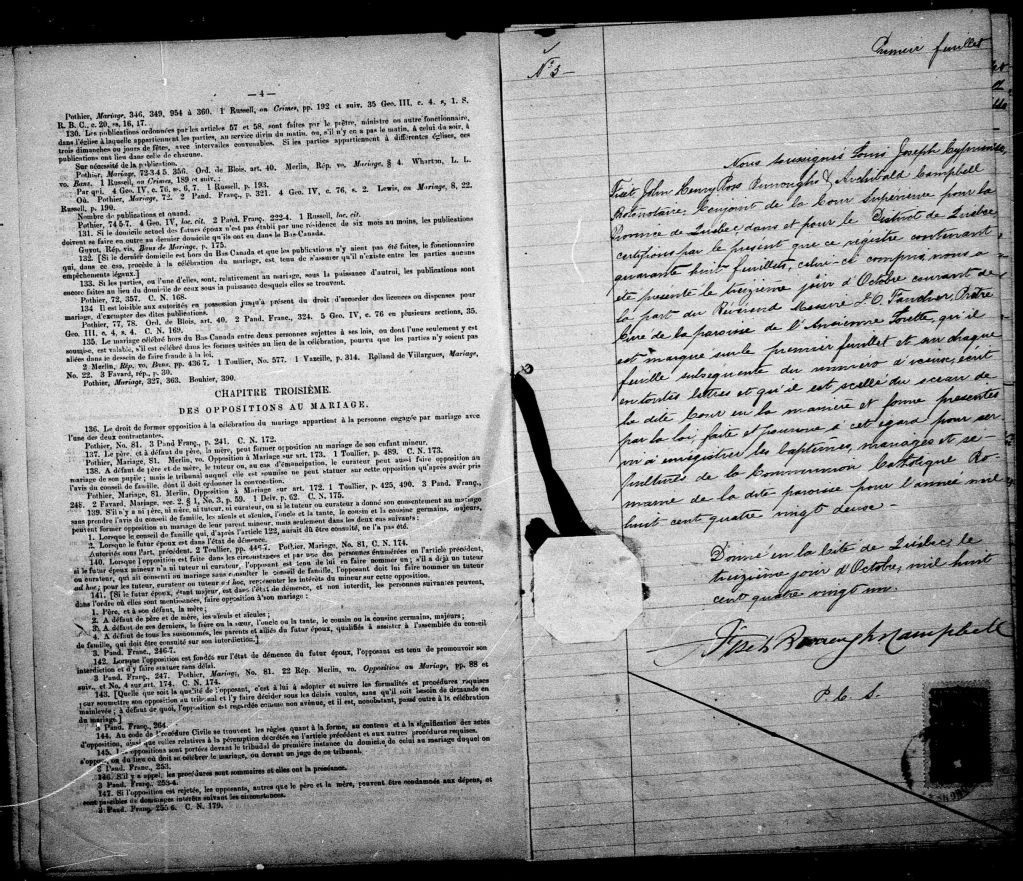 — 4 —
Pothier, Mariage, 346, 349, 954 à 360. 1 Russell, on Crimes, pp. 192 et suiv. 35 Geo. III, c. 4, s, 1. S.
R. B. C., c. 20, ss, 16, 17.
130. Les publications ordonnées par les articles 57 et 58, sont faites par le prêtre, ministre ou autre fonctionnaire,
dans l'église à laquelle appartiennent les parties, au service divin du matin, ou, s'il n'y en a pas le matin, à celui du soir, à
trois dimanches ou jours de fêtes, avec intervalles convenables. Si les parties appartiennent à différentes églises, ces
publications ont lieu dans celle de chacune.
Sur nécessité de la publication.
Pothier, Mariage, 72-3-4-5, 356. Ord. de Blois, art. 40. Merlin, Rép. vo. Mariage, § 4. Wharton, L. L.
vo. Bans. 1 Russell, on Crimes, 189 et suiv. :
Par qui. 4 Geo. IV, c. 76, ss. 6, 7. 1 Russell, p. 193.
Où. Pothier, Mariage, 72. 2 Pand. Franç., p. 321. 4 Geo. IV, c. 76, s. 2. Lewis, on Mariage, 8, 22.
Russell, p. 190.
Nombre de publications et quand.
Pothier, 74 5-7. 4 Geo. IV, loc. cit. 2 Pand. Franç., 222-4. 1 Russell, loc. cit.
131. Si le domicile actuel des futurs époux n'est pas établi par une résidence de six mois au moins, les publications
doivent se faire en outre au dernier domicile qu'ils ont eu dans le Bas-Canada.
Guyot, Rép. vis, Bans de Mariage, p. 175.
132. [Si le dernier domicile est hors du Bas Canada et que les publications n'y aient pas été faites, le fonctionnaire
qui, dans ce cas, procède à la célébration du mariage, est tenu de s'assurer qu'il n'existe entre les parties aucuns
empêchements légaux.]
133. Si les parties, ou l'une d'elles, sont, relativement au mariage, sous la puissance d'autrui, les publications sont
encore faites au lieu du domicile de ceux sous la puissance desquels elles se trouvent.
Pothier, 72, 357. C. N. 168.
134 Il est loisible aux autorités en possession jusqu'à présent du droit d'accorder des licences ou dispenses pour
mariage, d'exempter des dites publications.
Pothier, 77, 78. Ord. de Blois, art. 40. 2 Pand. Franç., 324. 5 Geo. IV, c. 76 en plusieurs sections, 35.
Geo. III, c. 4, s. 4. C. N. 169.
135. Le mariage célébré hors du Bas-Canada entre deux personnes sujettes à ses lois, ou dont l'une seulement y est
soumise, est valable, s'il est célébré dans les formes usitées au lieu de la célébration, pourvu que les parties n'y soient pas
allées dans le dessein de faire fraude à la loi.
2 Merlin, Rép. vo. Bans, pp. 436 7. 1 Toullier, No. 577. 1 Vazeille, p. 314. Rolland de Villargues, Mariage,
No. 22. 3 Favard, rép., p. 30.
Pothier, Mariage, 327, 363. Bouhier, 390.
CHAPITRE TROISIÈME.
DES OPPOSITIONS AU MARIAGE.
136. Le droit de former opposition à la célébration du mariage appartient à la personne engagée par mariage avec
l'une des deux contractantes.
Pothier, No. 81. 3 Pand Franç., p. 241. C. N. 172.
137. Le père, et à défaut du père, la mère, peut former opposition au mariage de son enfant mineur.
Pothier, Mariage, 81. Merlin, vo. Opposition à Mariage sur art. 173. 1 Toullier, p. 489. C. N. 173.
138. A défaut de père et de mère, le tuteur ou, au cas d'émancipation, le curateur peut aussi faire opposition au
mariage de son pupile ; mais le tribunal auquel elle est soumise ne peut statuer sur cette opposition qu'après avoir pris
l'avis du conseil de famille, dont il doit ordonner la convocation.
Pothier, Mariage, 81. Merlin, Opposition à Mariage sur art. 172. 1 Toullier, p. 425, 490. 3 Pand. Franç.,
248. 2 Favard, Mariage, sec. 2, § 1, No. 3, p. 59. 1 Delv. p. 62. C. N. 175.
139. S'il n'y a ni père, ni mère, ni tuteur, ni curateur, ou si le tuteur ou curateur a donné son consentement au mariage
sans prendre l'avis du conseil de famille, les aïeuls et aïeules, l'oncle et la tante, le cousin et la cousine germains, majeurs,
peuvent former opposition au mariage de leur parent mineur, mais seulement dans les deux cas suivants :
1. Lorsque le conseil de famille qui, d'après l'article 122, aurait dû être consulté, ne l'a pas été.
2. Lorsque le futur époux est dans l'état de démence.
Autorités sous Part. précédent. 2 Toullier, pp. 446-7. Pothier, Mariage, No. 81, C. N. 174.
140. Lorsque l'opposition est faite dans les circonstances et par une des personnes énumérées en l'article précédent,
si le futur époux mineur n'a ni tuteur ni curateur, l'opposant est tenu de lui en faire nommer un ; s'il a déjà un tuteur
ou curateur, qui ait consenti au mariage sans consulter le conseil de famille, l'opposant doit lui faire nommer un tuteur
ad hoc ; pour les tuteur, curateur ou tuteur ad hoc, représenter les intérêts du mineur sur cette opposition.
141. [Si le futur époux, étant majeur, est dans l'état de démence, et non interdit, les personnes suivantes peuvent,
dans l'ordre où elles sont mentionnées, faire opposition à son mariage :
1. Père, et à son défaut, la mère ;
2. A défaut de père et de mère, les aïeuls et aïeules ;
3. A défaut de ces derniers, le frère ou la sœur, l'oncle ou la tante, le cousin ou la cousine germains, majeurs ;
4. A défaut de tous les susnommés, les parents et alliés du futur époux, qualifiés à assister à l'assemblée du conseil
de famille, qui doit être consulté sur son interdiction.]
3. Pand. Franc., 246-7.
142. Lorsque l'opposition est fondée sur l'état de démence du futur époux, l'opposant est tenu de promouvoir son
interdiction et d'y faire statuer sans délai.
3 Pand. Franç., 247. Pothier, Mariage, No. 81. 22 Rép. Merlin, vo. Opposition au Mariage, pp. 88 et
suiv., et No. 4 sur art. 174. C. N. 174.
143. [Quelle que soit la qualité de l'opposant, c'est à lui à adopter et suivre les formalités et procédures requises
pour soumettre son opposition au tribunal et l'y faire décider sous les délais voulus, sans qu'il soit besoin de demande en
mainlevée ; à défaut de quoi, l'opposition est regardée comme non avenue, et il est, nonobstant, passé outre à la célébration
du mariage.]
3 Pand. Franç., 264.
144. Au code de Procédure Civile se trouvent les règles quant à la forme, au contenu et à la signification des actes
d'opposition, ainsi que celles relatives à la péremption décrétée en l'article précédent et aux autres procédures requises.
145. Les oppositions sont portées devant le tribunal de première instance du domicile de celui au mariage duquel on
s'oppose, ou du lieu où doit se célébrer le mariage, ou devant un juge de ce tribunal.
3 Pand. Franç., 253.
146. S'il y a appel, les procédures sont sommaires et elles ont la préséance.
3 Pand. Franç., 253-4.
147. Si l'opposition est rejetée, les opposants, autres que le père et la mère, peuvent être condamnés aux dépens, et
sont passibles de dommages intérêts suivant les circonstances.
3 Pand. Franç. 255 6. C. N. 179.
No 5 —
Premier feuillet
Nous soussignés Louis Joseph Cyprien
Fiset, John Henry Ross Burroughs & Archibald Campbell
Protonotaire, Conjoint de la Cour Supérieure pour la
Province de Québec, dans et pour le District de Québec
certifions par le présent que ce registre contenant
quarante huit feuillets, celui-ci compris, nous a
été présenté le treizième jour d'Octobre courant de
la part du Révérend Messire
Curé de la paroisse de l'Ancienne Lorette, qu'il
est marqué sur le premier feuillet et sur chaque
feuille subsequente du numero d'iceux, écrit
en toutes lettres et qu'il est scellé du sceau de
la dite Cour en la manière et forme presentés
par la loi, faite et pourvue à cet egard pour ser-
vir à enrégistrer les baptêmes, mariages et sé-
pultures de la Communion Catholique Ro-
maine de la dite paroisse pour l'année mil
huit cent quatre vingt deux. —
Donné en la Cité de Québec, le
treizième jour d'Octobre, mil huit
cent quatre vingt un.
Fiset Burroughs & Campbell
P. C. S.